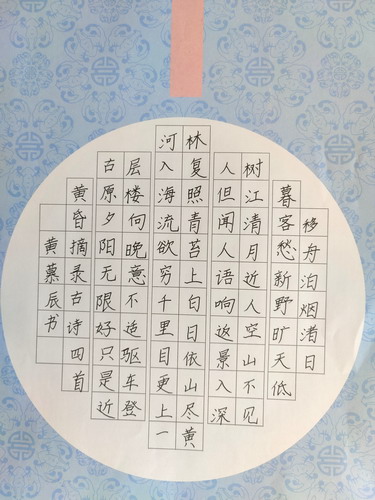 移舟泊烟渚日
暮客愁新野旷天低
树江清月近人空山不见
人但闻人语响返景入深
林复照青苔上白日依山尽黄
河入海流欲穷千里目更上一
层楼向晚意不适驱车登
古原夕阳无限好只是近
黄昏摘录古诗四首
黄菓辰书